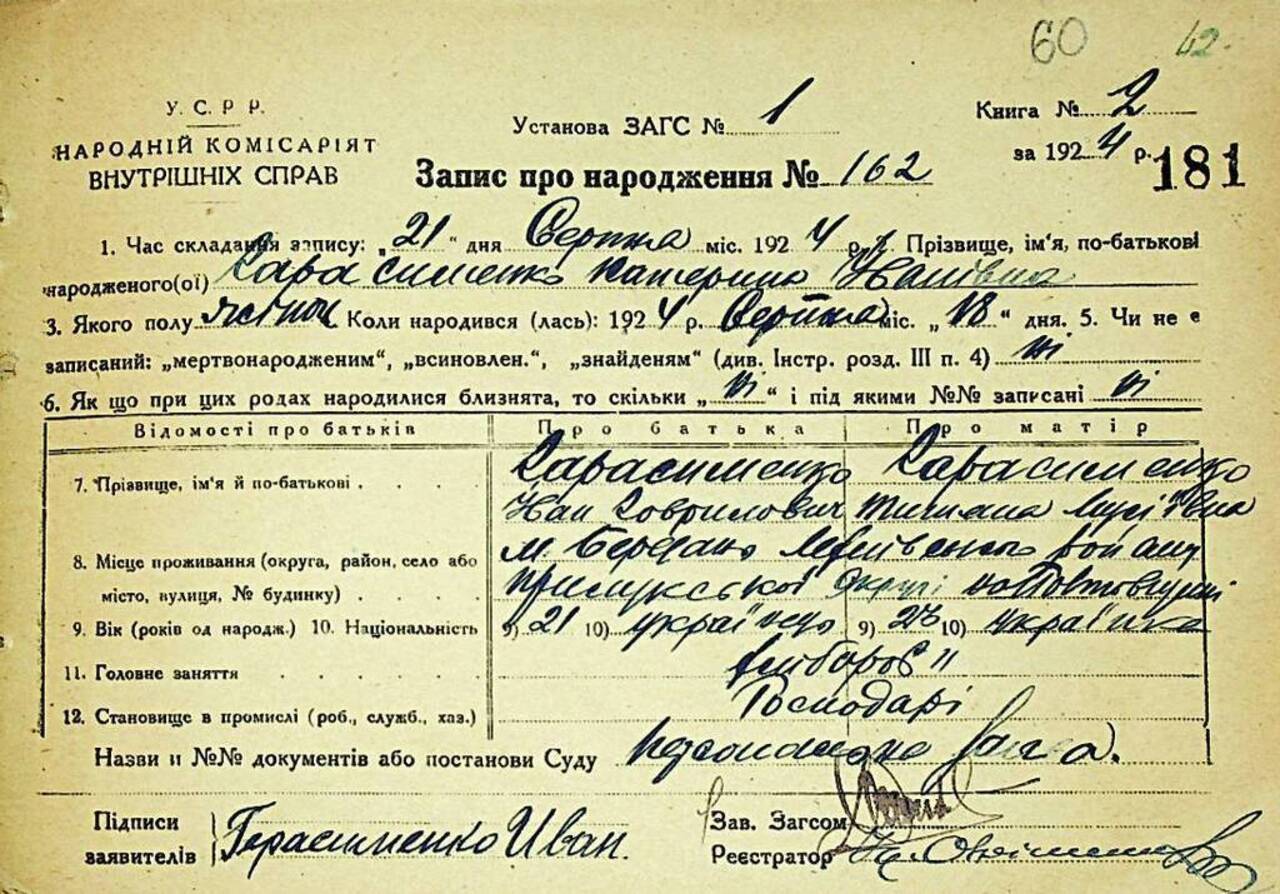 60 42.
У. С. Р Р.
НАРОДНІЙ КОМІСАРІЯТ
ВНУТРІШНІХ СПРАВ
Установа ЗАГС № 1
Книга № 2
за 1924 р.
181
Запис про народження № 162
1. Час складання запису: „21“ дня Серпня міс. 1924 р. 2. Прізвище, ім'я, по-батькові
народженого(ої) Гарасименко Катерина Іванівна
3. Якого полу жіноч Коли народився (лась): 1924 р. Серпня міс. „18“ дня. 5. Чи не є
записаний: „мертвонародженим“, „всиновлен.“, „знайденям“ (див. Інстр. розд. III п. 4) ні
6. Як що при цих родах народилися близнята, то скільки „ні“ і під якими №№ записані ні
Відомості про батьків Про батька Про матір
7. Прізвище, ім'я й по-батькові . . . . Гарасименко Гарасименко
Іван Гаврилович Титяна Мусіївна
8. Місце проживання (округа, район, село або м.
місто, вулиця, № будинку) . . . . Прилукської Округі на Полтавщині
9. Вік (років од народж.) 10. Національність 9) 21 10) українець 9) 10) українка
11. Головне заняття . . . . . хлібороб "
12. Становище в промислі (роб., служб., хаз.) Господарі
Назви и №№ документів або постанови Суду
Підписи
заявителів Герасименко Иван.
Зав. Загсом
Реєстратор